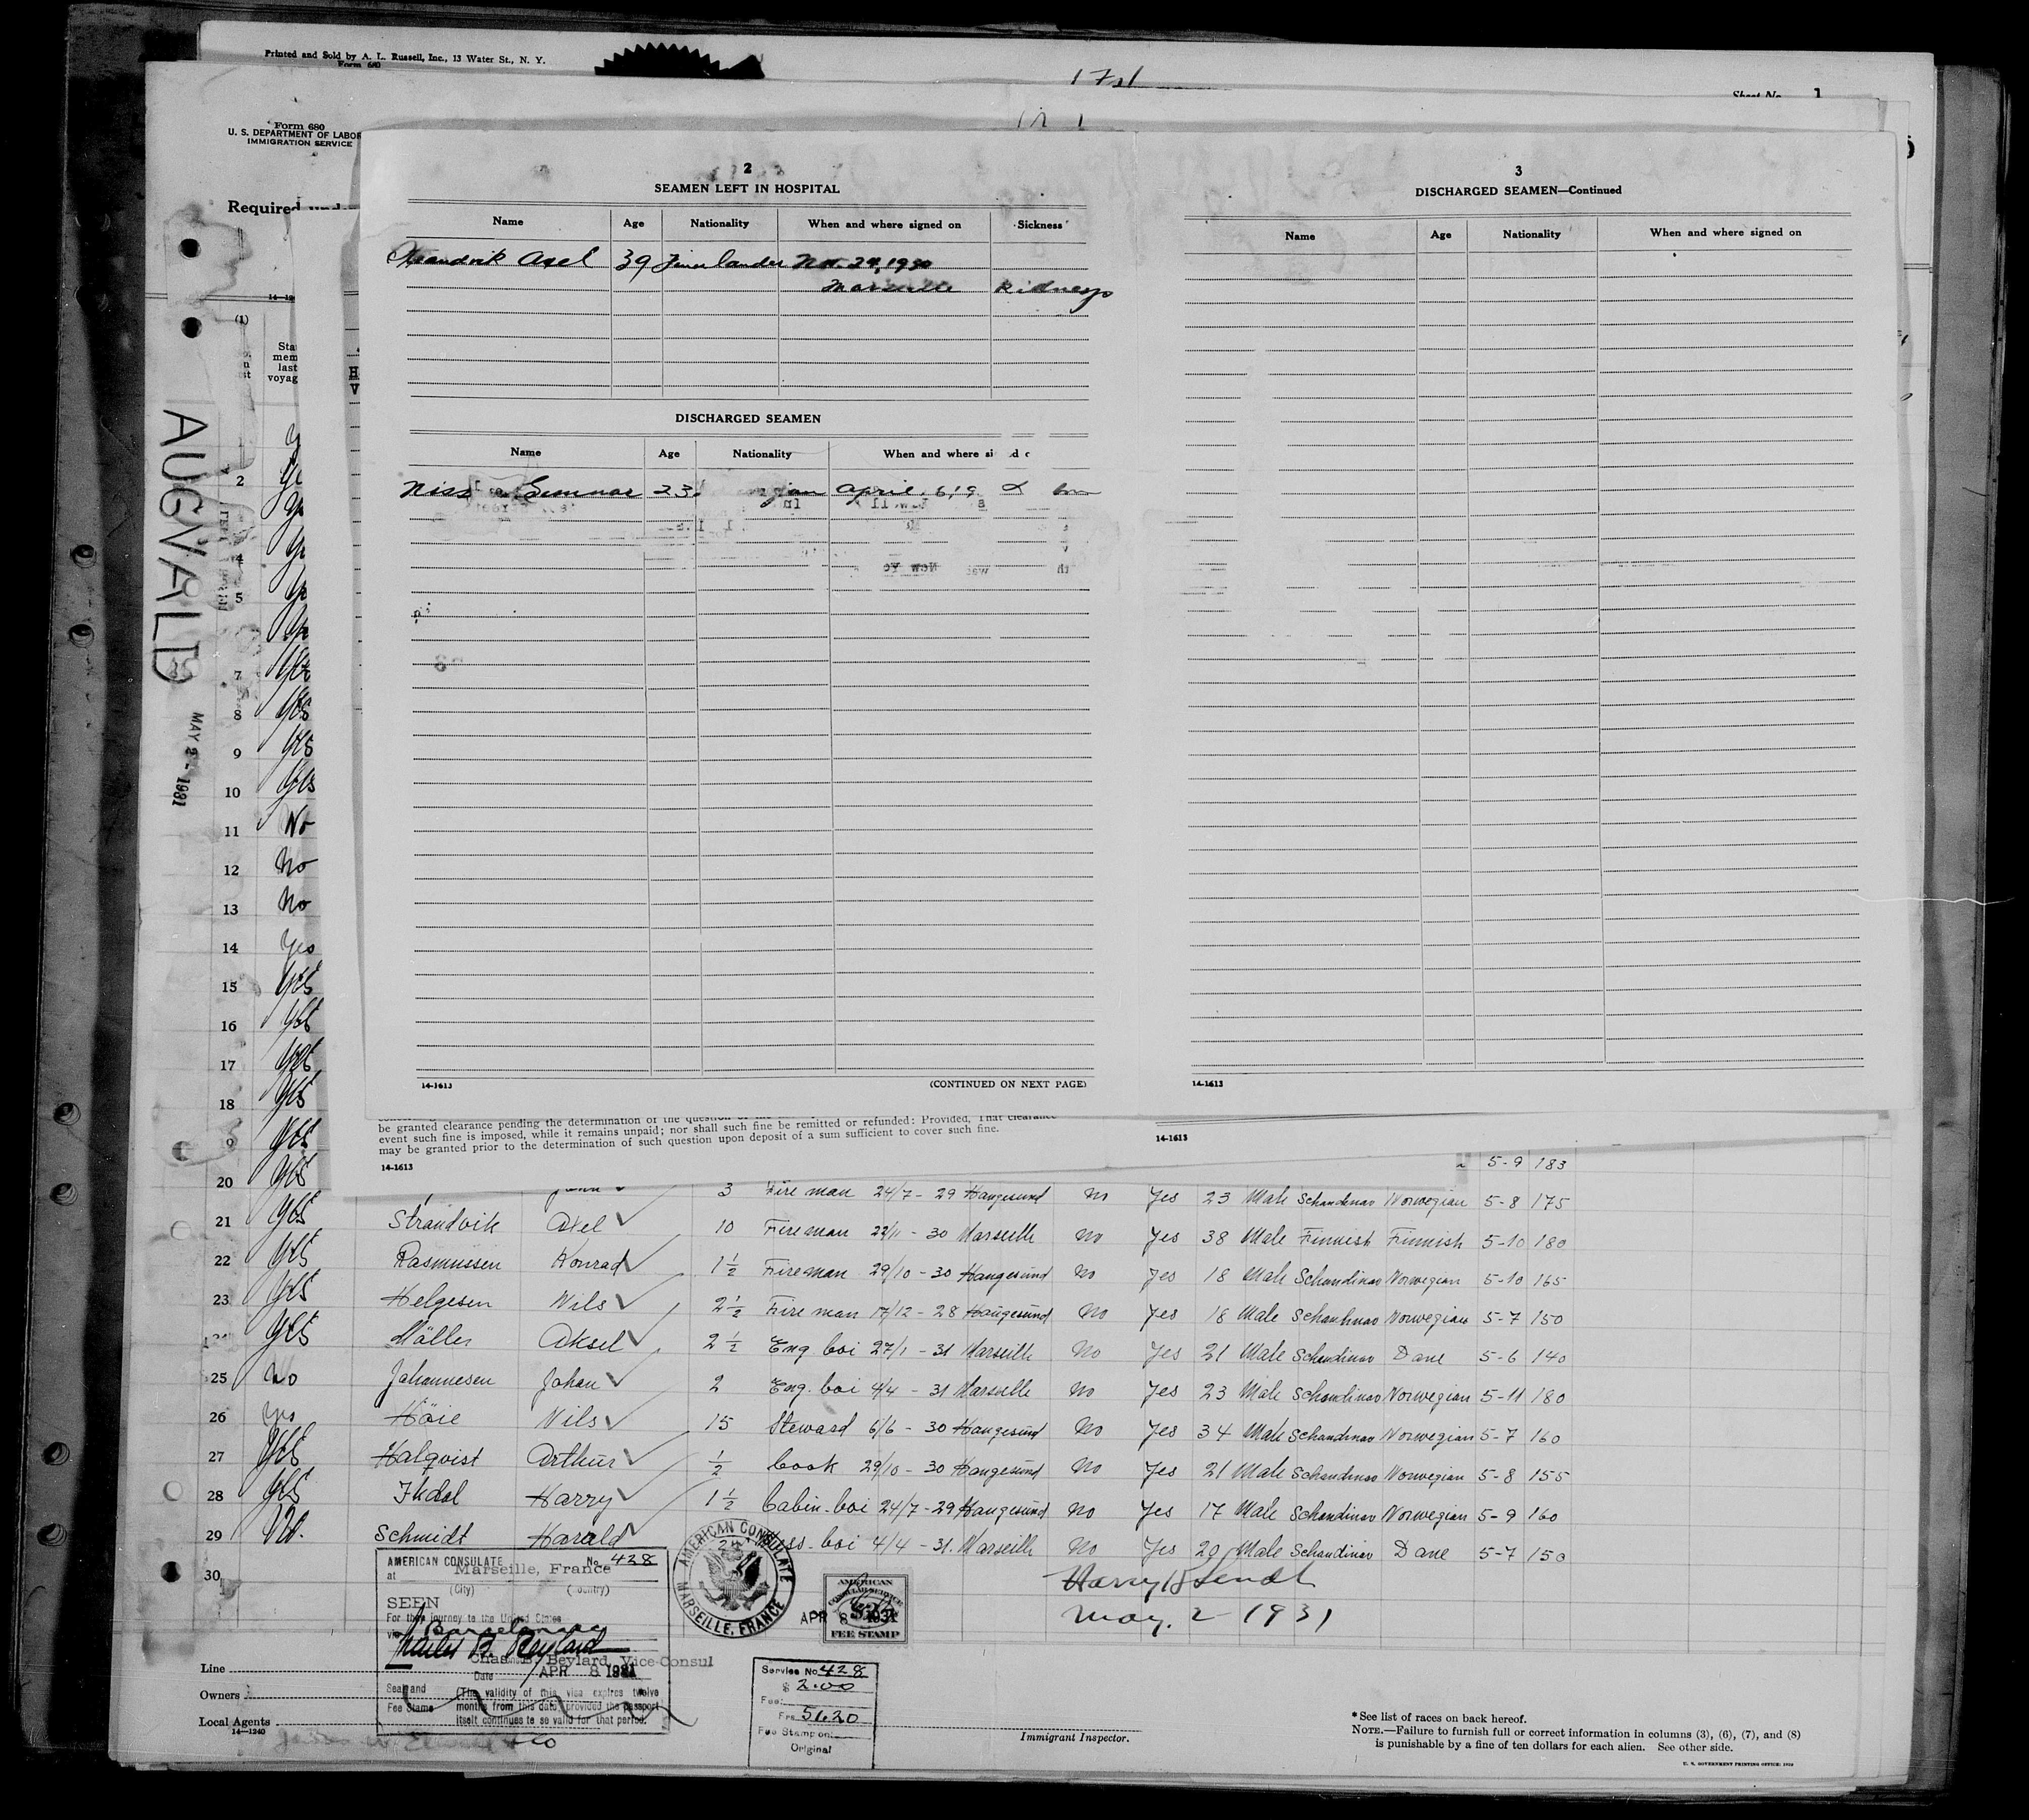 Printed and Sold by A. L. Russell, Inc., 13 Water St., N. Y.
Form 680
Sheet No. 1
Form 680
U. S. DEPARTMENT OF LABOR
IMMIGRATION SERVICE
Required under
AUGVALD
MAY 2 - 1931
2
SEAMEN LEFT IN HOSPITAL
Name Age Nationality When and where signed on Sickness
Strandvik Axel 39 Finnlander Nov. 24, 1930
Marseille Kidneys
DISCHARGED SEAMEN
Name Age Nationality When and where
Gunnar 23 April
14-1613 (CONTINUED ON NEXT PAGE)
3
DISCHARGED SEAMEN—Continued
Name Age Nationality When and where signed on
14-1613
be granted clearance pending the determination of the question of the
event such fine is imposed, while it remains unpaid; nor shall such fine be remitted or refunded: Provided, That clearance
may be granted prior to the determination of such question upon deposit of a sum sufficient to cover such fine.
14-1613
14-1613
(1)
2 Yes
4
5
7 Yes
8 Yes
9 Yes
10 Yes
11 No
12 No
13 No
14 Yes
15 Yes
16 Yes
17 Yes
18 Yes
9 Yes
5-9 183
20 Yes 3 Fire man 24/7 - 29 Haugesund No Yes 23 Male Schandinav Norwegian 5-8 175
21 Yes Strandvik Axel 10 Fireman 22/11 - 30 Marseille No Yes 38 Male Finnish Finnish 5-10 180
22 Yes Rasmussen Konrad 1 1/2 Fireman 29/10 - 30 Haugesund No Yes 18 Male Schandinav Norwegian 5-10 165
23 Yes Helgesen Nils 2 1/2 Fire man 17/12 - 28 Haugesund No Yes 18 Male Schandinav Norwegian 5-7 150
24 Yes Möller Aksel 2 1/2 Eng boi 27/1 - 31 Marseille No Yes 21 Male Schandinav Dane 5-6 140
25 No Johannesen Johan 2 Eng. boi 4/4 - 31 Marseille No Yes 23 Male Schandinav Norwegian 5-11 180
26 Yes Höie Nils 15 Steward 6/6 - 30 Haugesund No Yes 34 Male Schandinav Norwegian 5-7 160
27 Yes Halqvist Arthur 1/2 Cook 29/10 - 30 Haugesund No Yes 21 Male Schandinav Norwegian 5-8 155
28 Yes Ihdal Harry 1 1/2 Cabin-boi 24/7 - 29 Haugesund No Yes 17 Male Schandinav Norwegian 5-9 160
29 No. Schmidt Harald Mess-boi 4/4 - 31. Marseille No Yes 20 Male Schandinav Dane 5-7 150
30
AMERICAN CONSULATE No. 428
at Marseille, France
(City) (Country)
SEEN
For the journey to the United States
via Barcelona
Charles B. Beylard
Chas. Beylard, Vice-Consul
Date APR 8 1931
Seal and Fee Stamp
(The validity of this visa expires twelve
months from this date, provided the passport
itself continues to be valid for that period.
AMERICAN CONSULATE
MARSEILLE, FRANCE
APR 8 1931
AMERICAN
CONSULAR SERVICE
FEE STAMP
May. 2 - 1931
Service No. 428
$ 2.00
Fee:
Frs 51.20
Fee Stamp on:
Original
Line
Owners
Local Agents
14—1240
Immigrant Inspector.
* See list of races on back hereof.
NOTE.—Failure to furnish full or correct information in columns (3), (6), (7), and (8)
is punishable by a fine of ten dollars for each alien. See other side.
U. S. GOVERNMENT PRINTING OFFICE: 1929